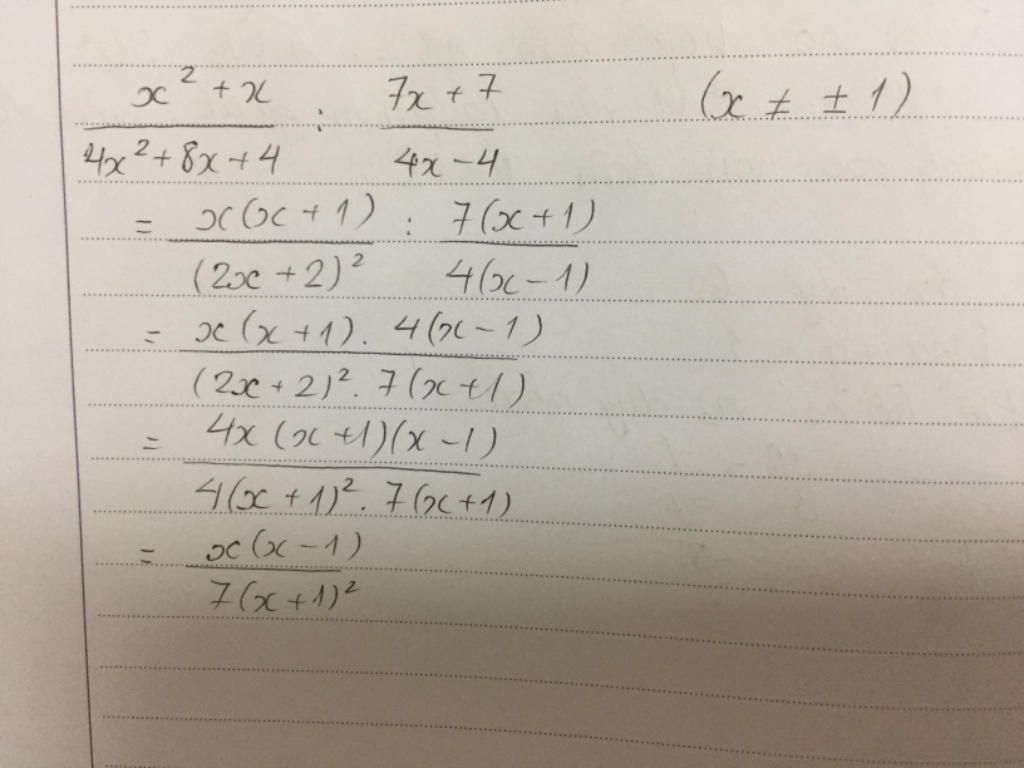 x² + x / 4x² + 8x + 4 : 7x + 7 / 4x - 4 (x ≠ ± 1)
= x(x + 1) / (2x + 2)² : 7(x + 1) / 4(x - 1)
= x(x + 1) . 4(x - 1) / (2x + 2)² . 7(x + 1)
= 4x(x + 1)(x - 1) / 4(x + 1)² . 7(x + 1)
= x(x - 1) / 7(x + 1)²